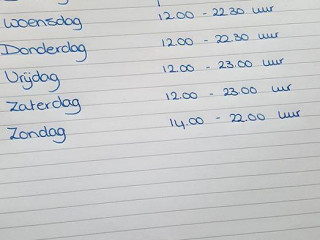 Woensdag 12.00 - 22.30 uur
Donderdag 12.00 - 22.30 uur
Vrijdag 12.00 - 23.00 uur
Zaterdag 12.00 - 23.00 uur
Zondag 14.00 - 22.00 uur